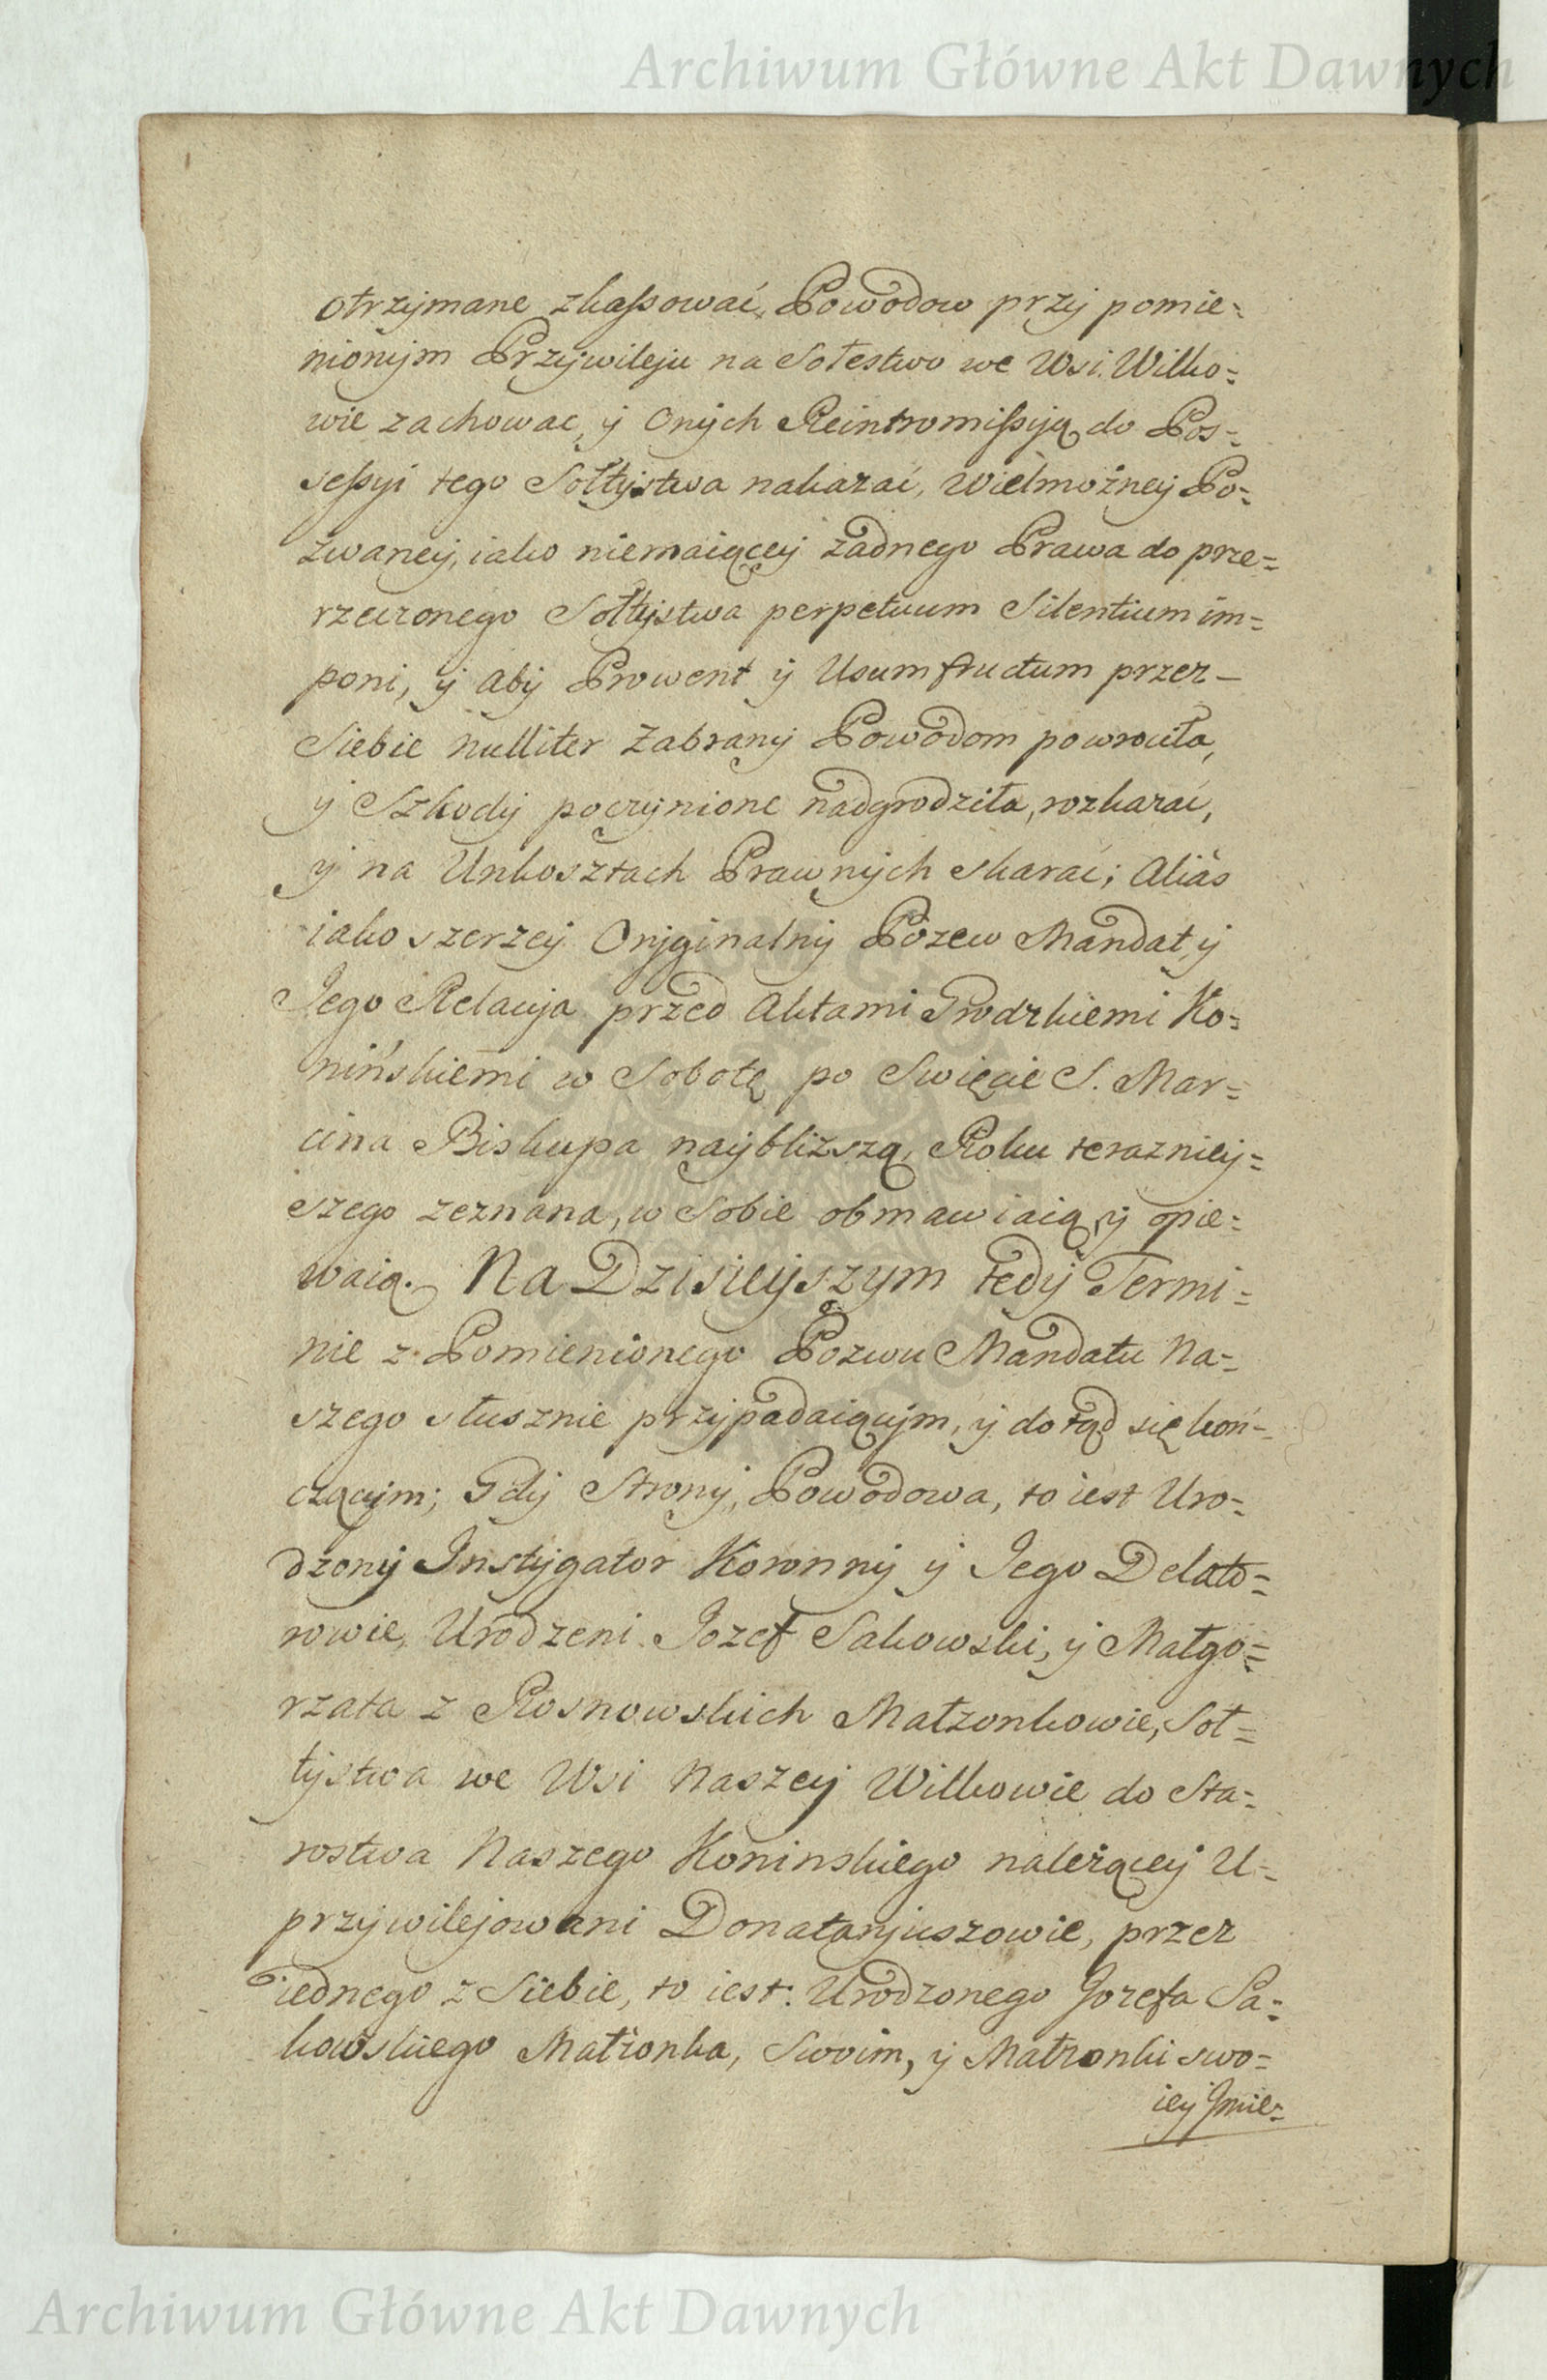 Archiwum Główne Akt Dawnych
otrzymane zkassować, Powodow przy pomie=
nionym Przywileju na Sołestwo we Wsi Wilko=
wie zachowac, y Onych Reintromissyją do Pos=
sessyi tego Sołtystwa nakazać, Wielmożney Po=
zwaney, iako niemaiącey żadnego Prawa do prze=
rzeczonego Sołtystwa perpetuum Silentium im=
poni, y aby Prowent y Usumfructum przez
Siebie nulliter Zabrany Powodom powrociła,
y Szkody poczynione nadgrodziła, rozkazać,
y na Unkosztach Prawnych skarać; Alias
iako szerzey Oryginalny Pozew Mandat, y
Jego Relacyja przed Aktami Grodzkiemi Ko=
nińskiemi w Sobotę po Swięcie S. Mar=
cina Biskupa nayblizszą, Roku terazniey=
szego zeznana, w Sobie obmawiaią, y opie=
waią. Na Dzisieyszym tedy Termi=
nie z Pomienionego Pozwu Mandatu Na=
szego słusznie przypadaiącym, y dotąd się koń=
czącym; Gdy Strony, Powodowa, to iest Uro=
dzony Instygator Koronny y Jego Delato=
rowie, Urodzeni Jozef Sakowski, y Małgo=
rzata z Rosnowskich Małzonkowie, Soł=
tystwa we Wsi Naszey Wilkowie do Sta=
rostwa Naszego Koninskiego należącey U=
przywilejowani Donataryuszowie, przez
iednego z Siebie, to iest: Urodzonego Jozefa Sa=
kowskiego Małżonka, Swoim, y Małzonki swo=
iey Jmie=
Archiwum Główne Akt Dawnych